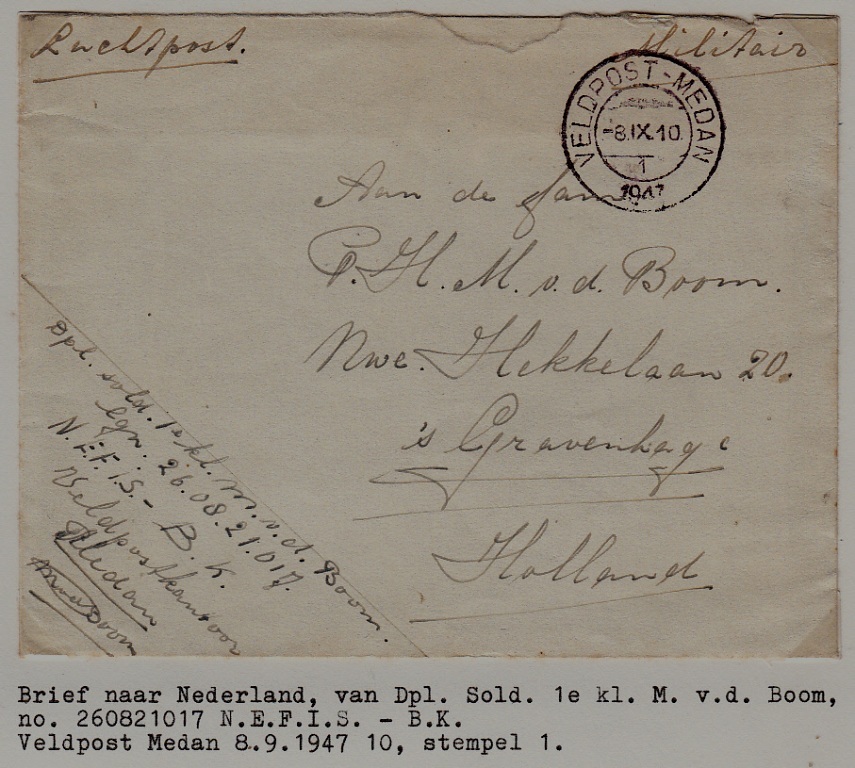 Luchtpost.
Militair
VELDPOST-MEDAN
-8.IX.10
1
1947
Aan de fam
P.H.M. v.d. Boom.
Nwe. Hekkelaan 20.
's Gravenhage
Holland
Dpl. sold. 1e kl. M.v.d. Boom.
lgn. 26.08.21.017.
N.E.F.I.S. - B.K.
Veldpostkantoor
Medan
MvdBoom
Brief naar Nederland, van Dpl. Sold. 1e kl. M. v.d. Boom,
no. 260821017 N.E.F.I.S. - B.K.
Veldpost Medan 8.9.1947 10, stempel 1.